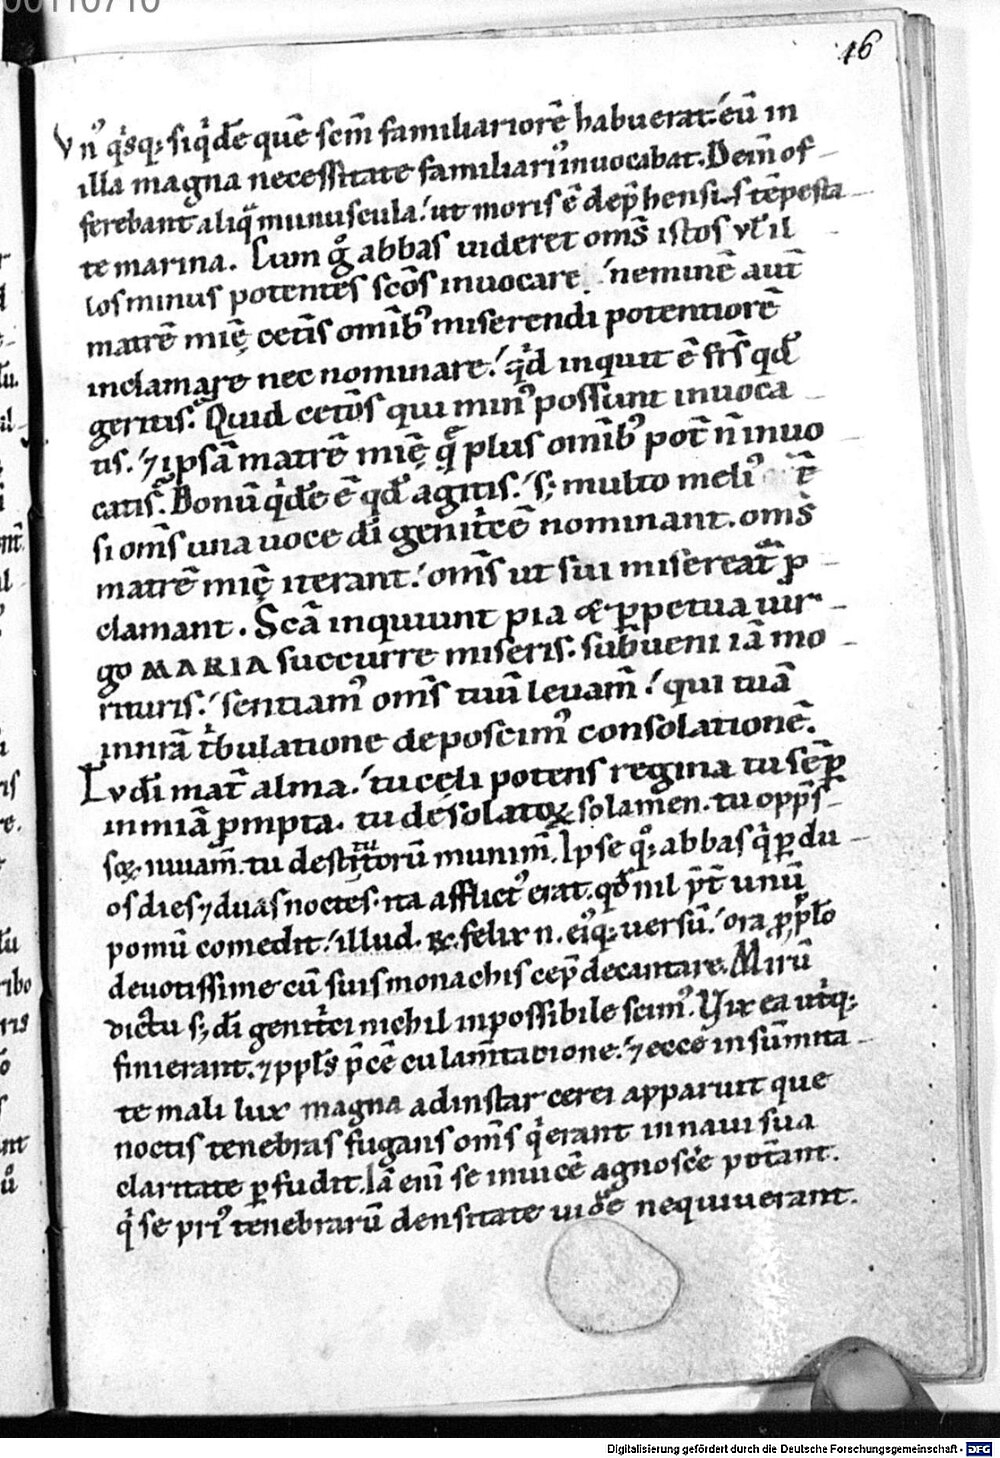 00110710
16
Vn᷒ qͥsq; siqͥdē quē scm̄ familiariorē habuerat.ʹ eū in
illa magna necessitate familiari᷒ inuocabat. Dem̄ of-
ferebant aliqͣ munuscula.ʹ ut moris ē dep̄hensis tēpesta-
te marina. Cum gͦ abbas uideret om̄s istos vl̄ il-
los minus potentes sc̄os inuocare.ʹ neminē aut̄
matrē mīę cet̄is om̄ib᷒ miserendi potentiorē
inclamare nec nominare.ʹ qͥd inquit ē fr̄s qd̄
geritis. Quid cet̄os qui min᷒ possunt inuoca-
tis.ʹ ⁊ ipsā matrē mīę qͣę plus om̄ib᷒ pot̄ n̄ inuo-
catis. Bonū qͥdē ē qd̄ agitis.ʹ s; multo meli᷒
si om̄s una uoce dī genitͥcē nominant. om̄s
matrē mīę iterant.ʹ om̄s ut sui misereat̄ ꝓ-
clamant. Sc̄a inquiunt pia & ꝑpetua uir-
go MARIA succurre miseris. subueni iā mo-
rituris.ʹ sentiam᷒ om̄s tuū leuam̄.ʹ qui tuā
in nr̄ā tͥbulatione deposcim᷒ consolationē.
Tv dī mat̄ alma.ʹ tu cęli potens regina tu sēꝑ
in mīā ꝓmpta. tu desolatoꝝ solamen. tu opp̄s-
soꝝ iuuam̄. tu destitutorū munim̄. Ipse qͦ; abbas qͥ ꝑ du-
os dies ⁊ duas noctes ita afflict᷒ erat. qd̄ nil p̄t̄ unū
pomū comedit.ʹ illud. R. felix n. ei᷒q; uersū.ʹ ora ꝓ pp̄lo
deuotissime cū suis monachis cep̄ decantare. Mirū
dictu s; dī genitͥci nichil inpossibile scim᷒. Vix ea utͥq;
finierant. ⁊ pp̄ls p̄cē cū lam̄tatione.ʹ ⁊ ecce in sūmita-
te mali lux magna ad instar cerei apparuit que
noctis tenebras fugans om̄s qͥ erant in naui sua
claritate ꝑfudit. Iā eni se inuicē agnosce͛ pot̄ant.
qͥ se pri᷒ tenebrarū densitate uide͛ nequiuerant.
Digitalisierung gefördert durch die Deutsche Forschungsgemeinschaft - DFG